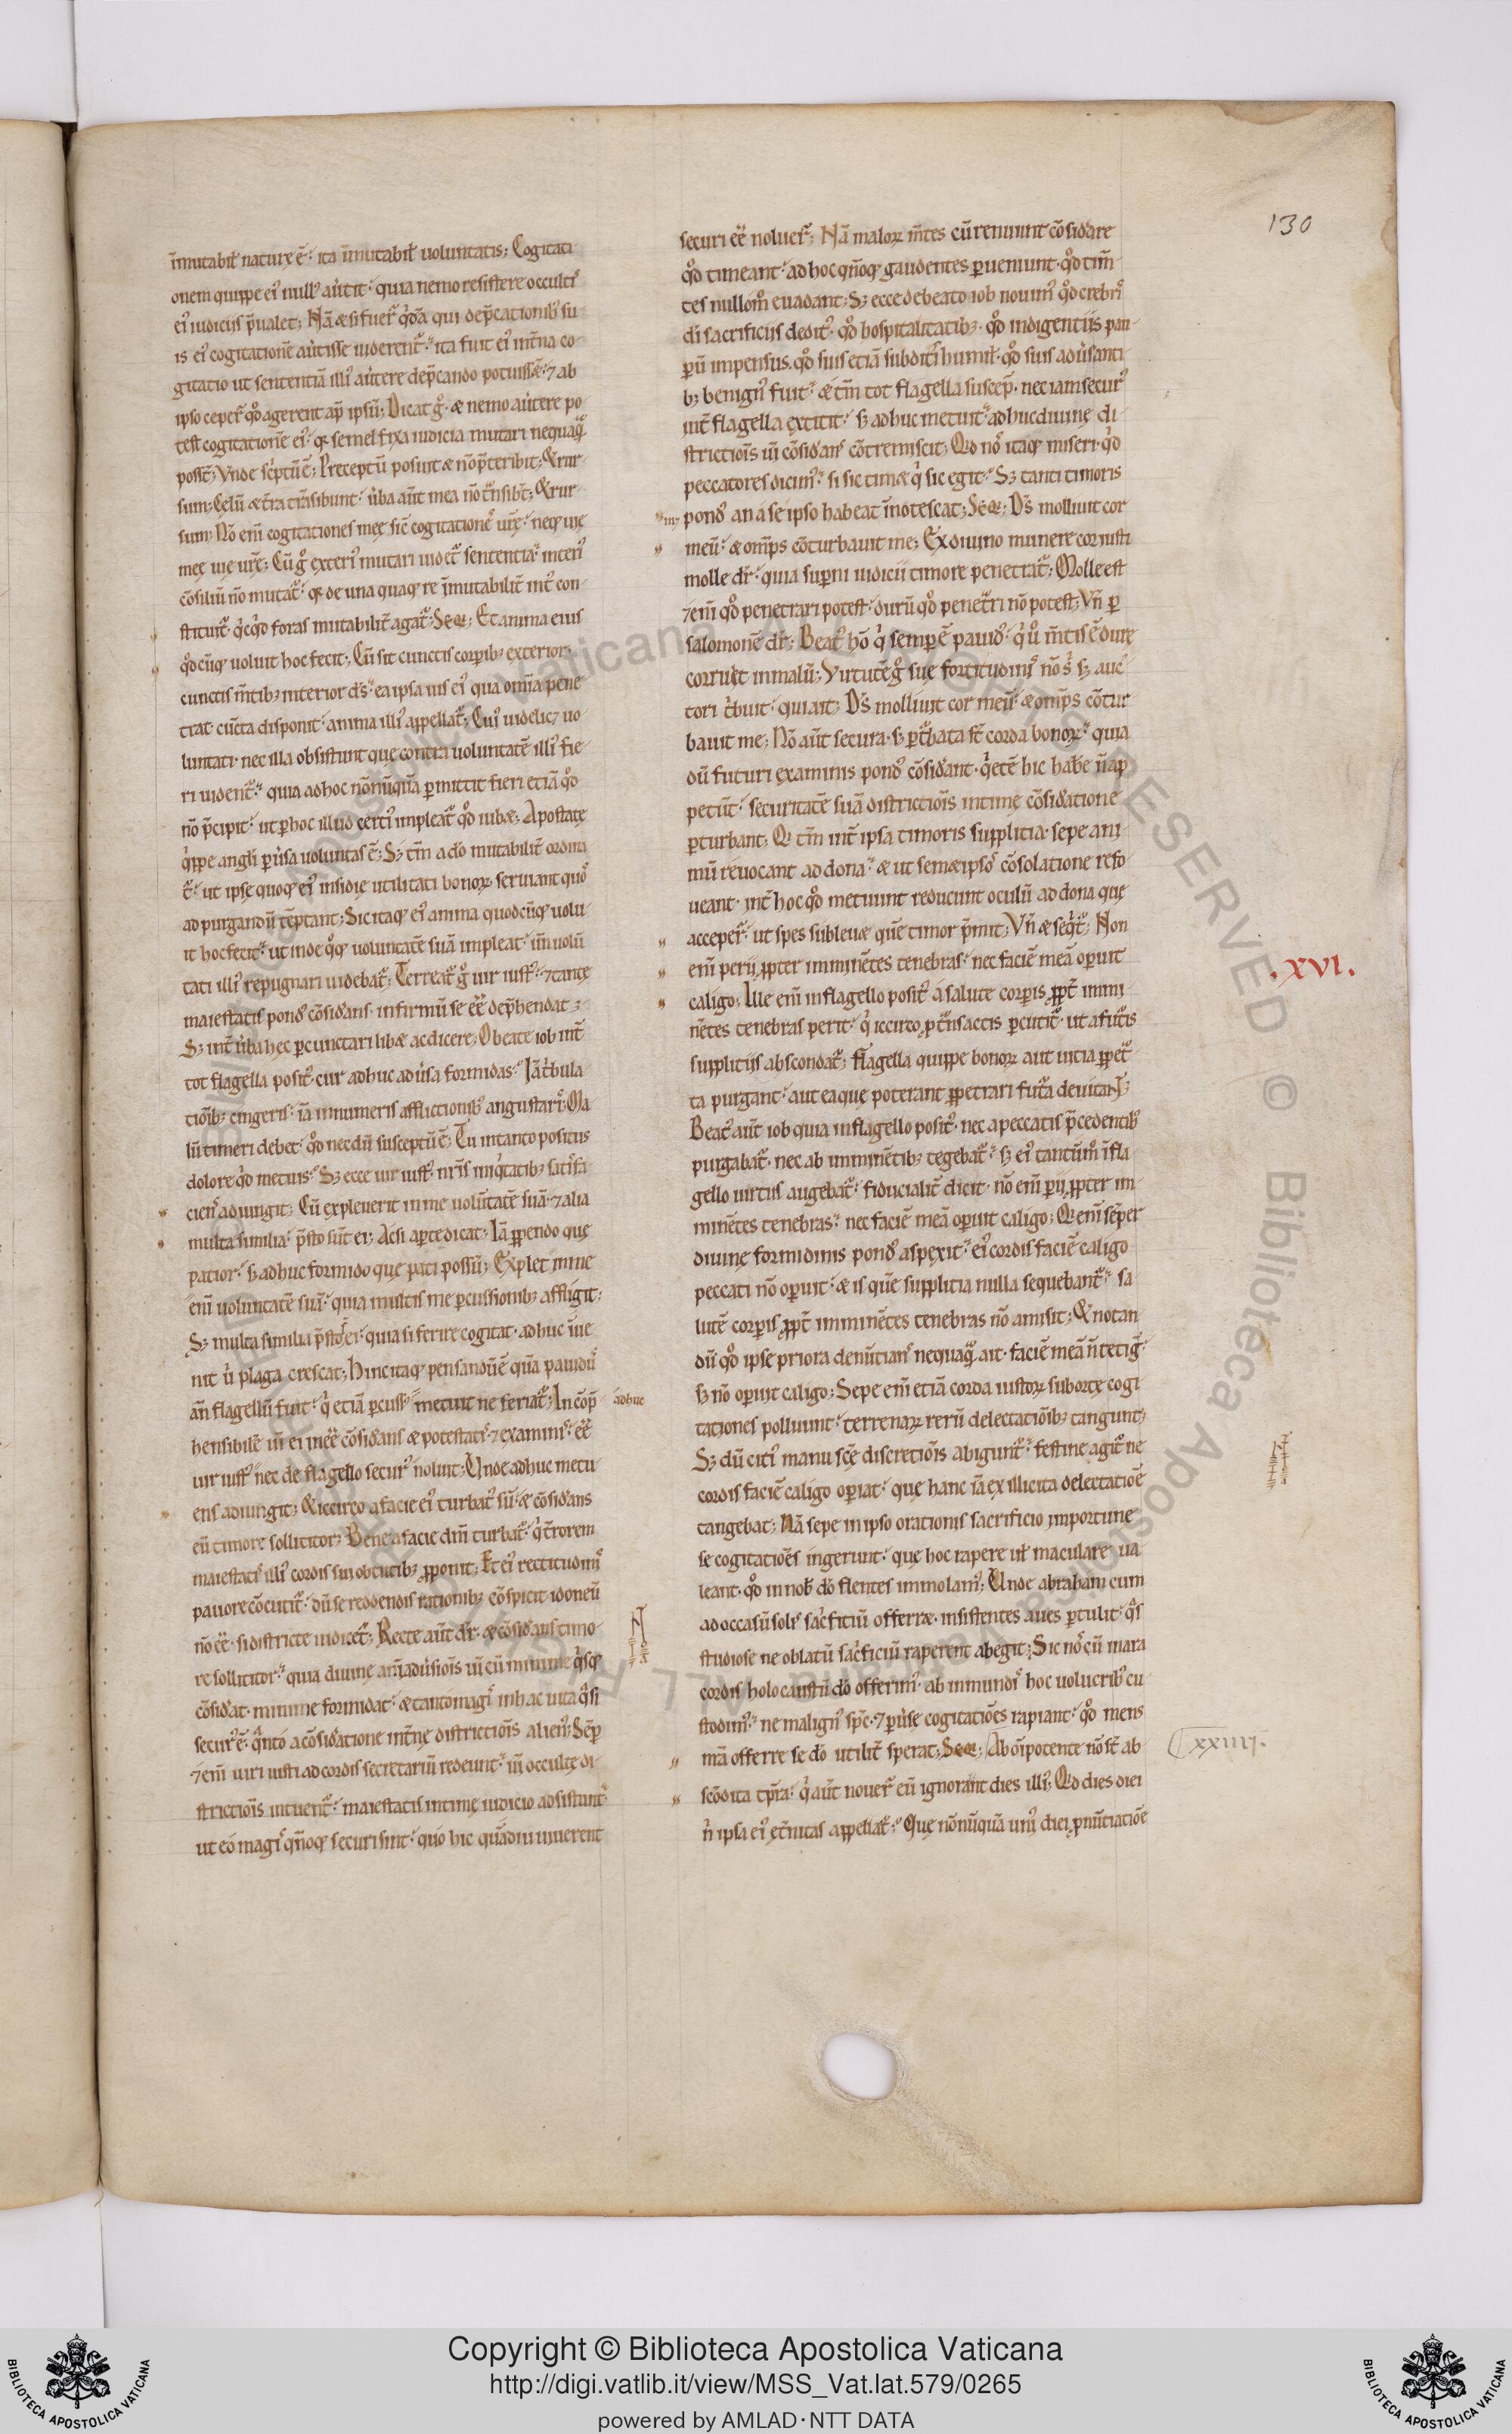 130
īmutabił naturę ē· ita īmutabił uoluntatis; Cogitati
onem quippe ei' null' aũtit· quia nemo resistere occultis
ei' iudiciis p̄ualet; Nā & si fuer̄ q̇dā qui dep̄cationib; su
is ei' cogitationē aũtisse uiderent̃· ita fuit ei' int̄na co
gitatio ut sententiā illi' aũtere dep̄cando potuissē· ⁊ ab
ipso ceper̄ qđ agerent ap̄ ipsū; Dicat g̊· & nemo aũtere po
test cogitationē ei'· q; semel fixa iudicia mutari nequaq̃
posst̄; Vnde sc̄ptū ē; Preceptū posuit & nō p̄teribit; & rur
sum; Cęlū & t̄ra t̃nsibunt· ũba aūt mea nō t̃nsibt̄; & rur
sum; Nō eni cogitationes meę sic̄ cogitationes ur̄ę· neq; uię
meę uię ur̄ę; Cū g̊ exteri' mutari uidet̃ sententia· interi'
cōsiliū nō mutat̃· q; de una quaq; re īmutabilit̄ int' con
stituit̃· q̇cq̇d foras mutabilit̄ agat̃; Seq̄; Et anima eius
qđcūq; uoluit hoc fecit; Cū sit cunctis corpib; exterior·
cunctis m̄tib; interior ds̄· ea ipsa uis ei' qua omīa pene
trat· cūcta disponit· anima illi' appellat̃; Cui' uidelic; uo
luntati· nec illa obsistunt quę contra uoluntatē illi' fie
ri uident̃· quia ad hoc nōnūquā pmittit fieri etiā qđ
nō p̄cipit· ut p hoc illud certi' impleat̃ qđ iub&; Apostatę
q̇ppe angli pũsa uoluntas ē; S; tm̄ a dō mutabilit̄ ordina
t̃· ut ipse quoq; ei' insidię utilitati bonoꝝ seruiant quos
ad purgandū tēptant; Sic itaq; ei' anima quodcūq; uolu
it hoc fecit· ut inde q̊q; uoluntatē suā impleat· un̄ uolū
tati illi' repugnari uidebat̃; Terreat̃ g̊ uir iust'· ⁊ tantę
maiestatis pond' cōsidans· infirmū se eē̄ dep̄hendat;
S; int̄ ũba hęc pcunctari lib& ac dicere; O beate iob int̄
tot flagella posit'· cur adhuc adũsa formidas· Iā t̄bula
tiōib; cingeris· iā innumeris afflictionib; angustaris· Ma
lū timeri debet· qđ necdū susceptū ē; Tu in tanto positus
dolore q̇d metuis· S; ecce uir iust' nr̄is inq̇tatib; satisfa
ciens adiungit; Cū expleuerit in me uolūtatē suā· ⁊ alia
multa similia· p̄sto sūt ei; Acsi apte dicat; Iā ppendo quę
patior· s; adhuc formido quę pati possū; Explet in me
eni uoluntatē suā· quia multis me pcussionib; affligit;
S; multa similia p̄sto s̄ ei· quia si ferire cogitat· adhuc īue
nit ũ plaga crescat; Hinc itaq; pensandū ē quā pauid'
an̄ flagellū fuit· q̇ etiā pcuss' metuit ne feriat̃; Incōp̄
adhuc
hensibilē uī ei ineē̄ cōsidans & potestatis· ⁊ examinis· eē̄
uir iust' nec de flagello secur' noluit; Vnde adhuc metu
ens adiungit; & iccirco a facie ei' turbat' sū· & cōsidans
eū timore sollicitor; Bene a facie dn̄i turbat̃· q̇ t̄rorem
maiestatis illi' cordis sui obtutib; pponit; Et ei' rectitudinis
pauore cōcutit̃· dū se reddendis rationib; cōspicit idoneū
nō eē̄· si districte iudicet̃; Recte aūt dr̄· & cōsidans timo
re sollicitor· quia diuinę am̄aduīsiōis uī cū minime q̇sq;
cōsidat· minime formidat· & tanto magis in hac uita q̃si
secur' ē· q̃nto a cōsidatione int̄nę districtiōis alien'; Sēp
⁊eni uiri iusti ad cordis secretariū redeunt· uī occultę di
strictiōis intuent̃· maiestatis intimę iudicio adsistunt·
ut eo magis qn̄oq; securi sint· quo hic quādiu uiuerent
securi eē̄ noluer̄; Nā maloꝝ m̄tes cū renuunt cōsidare
qđ timeant· ad hoc qn̄oq; gaudentes pueniunt· qđ tim̄
tes nullom̊ euadant; S; ecce de beato iob nouim' qđ crebris
dī sacrificiis dedit'· qđ hospitalitatib;· qđ indigentiis pau
pū impensus· qđ suis etiā subditis humił· qđ suis adũsanti
b; benign' fuit· & tm̄ tot flagella suscep̄· nec iam secur'
int̄ flagella extitit· s; adhuc metuit· adhuc diuinę di
strictiōis uī cōsidans cōtremiscit; Qđ nos itaq; miseri· q̇d
peccatores dicim'· si sic tim& q̇ sic egit· S; tanti timoris
pond' an a se ipso habeat īnotescat; Seq̄; Ds̄ molliuit cor
meū· & omps̄ cōturbauit me; Ex diuino munere cor iusti
molle dr̄· quia supni iudicii timore penetrat̃; Molle est
⁊eni qđ penetrari potest· durū qđ penet̃ri nō potest; Vn̄ p
salomonē dr̄; Beat' hō q̇ semp ē pauid'· q̇ ů m̄tis ē durę
corruet in malū; Virtutē g̊ suę fortitudinis nō s̄· s; auc
tori t̄buit· qui ait; Ds̄ molliuit cor meū· & omps̄ cōtur
bauit me; Nō aūt secura· s; pt̃bata st̄ corda bonoꝝ· quia
dū futuri examinis pond' cōsidant· q̇etē hic hab̄e n̄ ap
petūt· securitatē suā districtiōis intimę cōsidatione
pturbant; Q tm̄ int̄ ipsa timoris supplicia· sepe ani
mū reuocant ad dona· & ut semetipsos cōsolatione refo
ueant· int̄ hoc qđ metuunt reducunt oculū ad dona quę
acceper̄· ut spes subleu& quē timor p̄mit; Vn̄ & seq̇t̃; Non
eni perii ppter imminētes tenebras· nec faciē meā opuit
caligo; Ille eni in flagello posit' a salute corpis ppt̄ immi
nētes tenebras perit· q̇ iccirco p t̃nsactis pcutit̃· ut a fut̃is
suppliciis abscondat̃; Flagella quippe bonoꝝ aut uicia ppet̃
ta purgant· aut ea quę poterant ppetrari fut̃a deuitant;
Beat' aūt iob quia in flagello posit'· nec a peccatis p̄cedentib;
purgabat̃· nec ab imminētib; tegebat̃· s; ei' tantūm̊ ī fla
gello uirtus augebat̃· fiducialit̄ dicit· nō eni pii ppter im
minētes tenebras· nec faciē meā opuit caligo; Q eni sēper
diuinę formidinis pond' aspexit· ei' cordis faciē caligo
peccati nō opuit· & is quē supplicia nulla sequebant̃· sa
lutē corpis ppt̄ imminētes tenebras nō amisit; & notan
dū qđ ipse priora denūtians nequaq̃ ait· faciē meā n̄ tetig̃·
s; nō opuit caligo; Sepe eni etiā corda iustoꝝ subortę cogi
tationes polluunt· terrenaꝝ rerū delectatiōib; tangunt;
S; dū citi' manu scę̄ discretiōis abigunt̃· festine agit̃ ne
cordis faciē caligo opiat· quę hanc iā ex illicita delectatiōe
tangebat; Nā sepe in ipso orationis sacrificio importune
se cogitatiōes ingerunt· quę hoc rapere uł maculare ua
leant· qđ in nob̄ dō flentes immolam'; Vnde abraham cum
ad occasū solis sac̄ficiū offerr&· insistentes aues ptulit· q̃s
studiose ne oblatū sac̄ficiū raperent abegit; Sic nos cū in ara
cordis holocaustū dō offerim'· ab inmundis hoc uolucrib; cu
stodim'· ne malign' spc̄· ⁊ pũsę cogitatiōes rapiant· qđ mens
nr̄a offerre se dō utilit̄ sperat; Seq̄; Ab oīpotente nō st̄ ab
scōdita tpr̄a· q̇ aūt nouer̄ eū ignorant dies illi'; Qđ dies diei
n̄ ipsa ei' ęt̄nitas appellat̃· Quę nōnūquā uni' diei pnūtiatiōe
.XVI.
xxiiij.
Copyright © Biblioteca Apostolica Vaticana
http://digi.vatlib.it/view/MSS_Vat.lat.579/0265
powered by AMLAD·NTT DATA
BIBLIOTECA APOSTOLICA VATICANA
BIBLIOTECA APOSTOLICA VATICANA